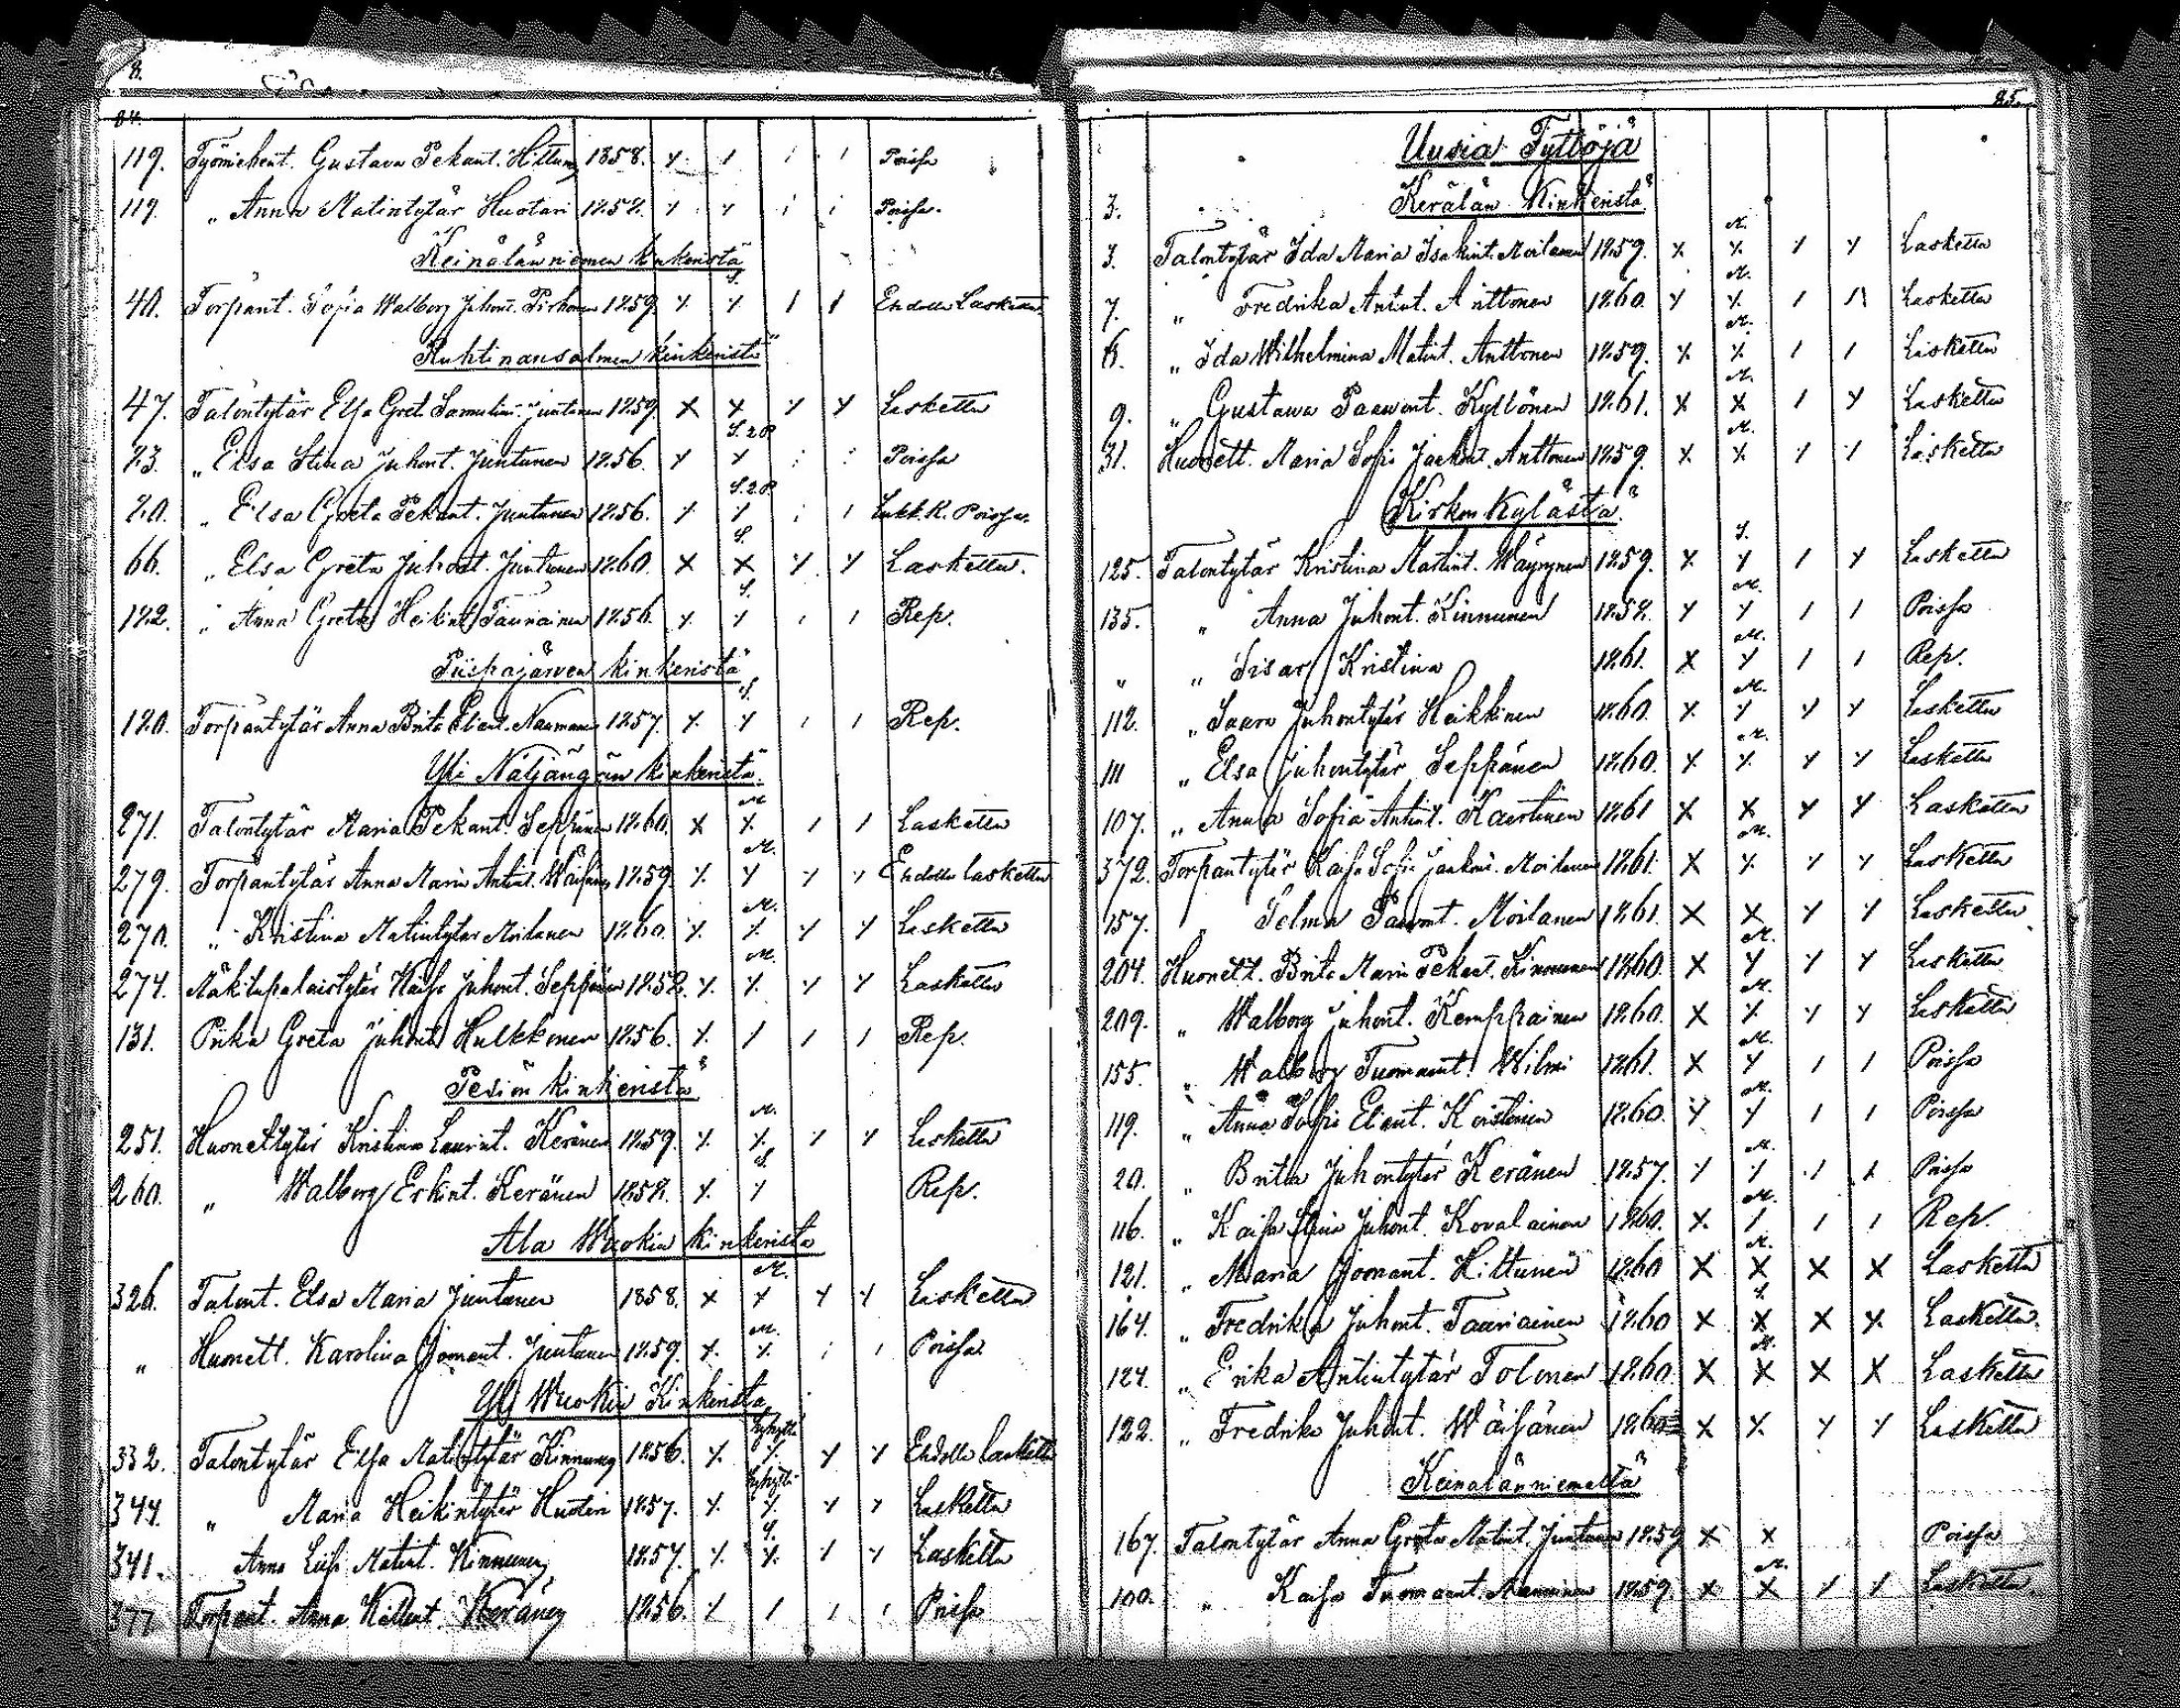 8.
84.
119. Työmiehent. Gustava Pekant. Hiltunen 1858. x / / / Poissa
119. „ Anna Matintytär Huotari 1858. / / / / Poissa.
Keinälänniemen kinkeristä
S.
40. Torpant. Sofia Walborg Juhont. Pirhonen 1859. x x / / Ehdolla Laskettu
Ruhtinansalmen kinkeristä
47. Talontytär Elsa Gret. Samulint. Juntunen 1859. x x x x Laskettu
S. 2 R
23. „ Elsa Stina Juhont. Juntunen 1856. x x / / Poissa
S. 2 R
20. „ Elsa Greta Pekant. Juntunen 1856. x x / / Lukk. K. Poissa.
S.
66. „ Elsa Greta Juhont. Juntunen 1860. x x x x Laskettu.
S.
122. „ Anna Greta Heikint. Tauriainen 1856. x x / / Rep.
Piispajärven kinkeristä
S.
120. Torpantytär Anna Brita Eliant. Naumanen 1857. x x / / Rep.
Yli Näljängän kinkeristä
M
271. Talontytär Maria Pekant. Seppänen 1860. x x / / Laskettu
M.
279. Torpantytär Anna Maria Antint. Wäisänen 1859. x x x x Ehdolla laskettu
M.
270. „ Kristina Matintytär Moilanen 1860. x x x x Laskettu
M.
274. Mäkitupalaistytär Kaisa Juhont. Seppänen 1858. x x x x Laskettu
131. Piika Greta Juhont. Hulkkonen 1856. x / / / Rep.
Pesiön kinkeristä
M.
251. Huonettytär Kristina Laurint. Keränen 1859. x x x x Laskettu
S.
260. „ Walborg Erkint. Keränen 1858. x x Rep.
Ala Wuokin kinkeristä
M.
326. Talont. Elsa Maria Juntunen 1858. x x x x Laskettu
M.
„ Huonett. Karolina Joonant. Juntunen 1859. x x / / Poissa
Yli Wuokin Kinkeristä
332. Talontytär Elsa Matintytär Kinnunen 1856. x x x x Ehdolla laskettu
344. „ Maria Heikintytär Huotari 1857. x x x x Laskettu
S.
341. Anna Liisa Matint. Kinnunen 1857. x x x x Laskettu
377 Torpant. Anna Keränen 1856. x / / / Poissa
85.
Uusia Tyttöjä
3. Kerälän Kinkeristä
M.
3. Talontytär Ida Maria Isakint. Moilanen 1859. x x x x Laskettu
M.
7. „ Fredrika Antint. Anttonen 1860. x x / / Laskettu
M.
6. „ Ida Wilhelmina Matint. Anttonen 1859. x x / / Laskettu
M.
9. „ Gustawa Paawont. Kyllönen 1861. x x / x Laskettu
M.
31. Huonett. Maria Sofia Jaakont. Anttonen 1859. x x x x Laskettu
Kirkon Kylästä
S.
125. Talontytär Kristina Matint. Wäyrynen 1859. x x / x Laskettu
M.
135. „ Anna Juhont. Kinnunen 1858. x x / / Poissa
M.
„ „ Sisar Kristina 1861. x x / / Rep.
M.
112. „ Saara Juhontytär Heikkinen 1860. x x x x Laskettu
M.
111 „ Elsa Juhontytär Seppänen 1860. x x x x Laskettu
107. „ Anna Sofia Antint. Karttunen 1861 x x x x Laskettu
M.
372. Torpantytär Kaisa Sofia Jaakont. Moilanen 1861. x x x x Laskettu
157. „ Selma Paavont. Moilanen 1861. x x x x Laskettu
M.
204. Huonett. Brita Maria Pekant. Kinnunen 1860. x x x x Laskettu
M.
209. „ Walborg Juhont. Kemppainen 1860. x x x x Laskettu
M.
155. „ Walborg Tuomaant. Wilmi 1861. x x / / Poissa
M.
119. „ Anna Sofia Eliant. 1860. x x / / Poissa
M.
20. „ Britta Juhontytär Keränen 1857. x x / / Poissa
M.
116. „ Kaisa Stina Juhont. Kovalainen 1860. x / / / Rep.
M.
121. „ Maria Joonant. Hiltunen 1860 x x x x Laskettu
S.
164. „ Fredrika Juhont. Tauriainen 1860 x x x x Laskettu
M.
124. „ Erika Antintytär Tolonen 1860. x x x x Laskettu
122. „ Fredrika Juhont. Wäisänen 1860 x x x x Laskettu
Keinälänniemeltä
167. Talontytär Anna Greta Matint. Juntunen 1859 x x Poissa
M.
100. „ Kaisa Tuomaant. Manninen 1859. x x / / Laskettu.